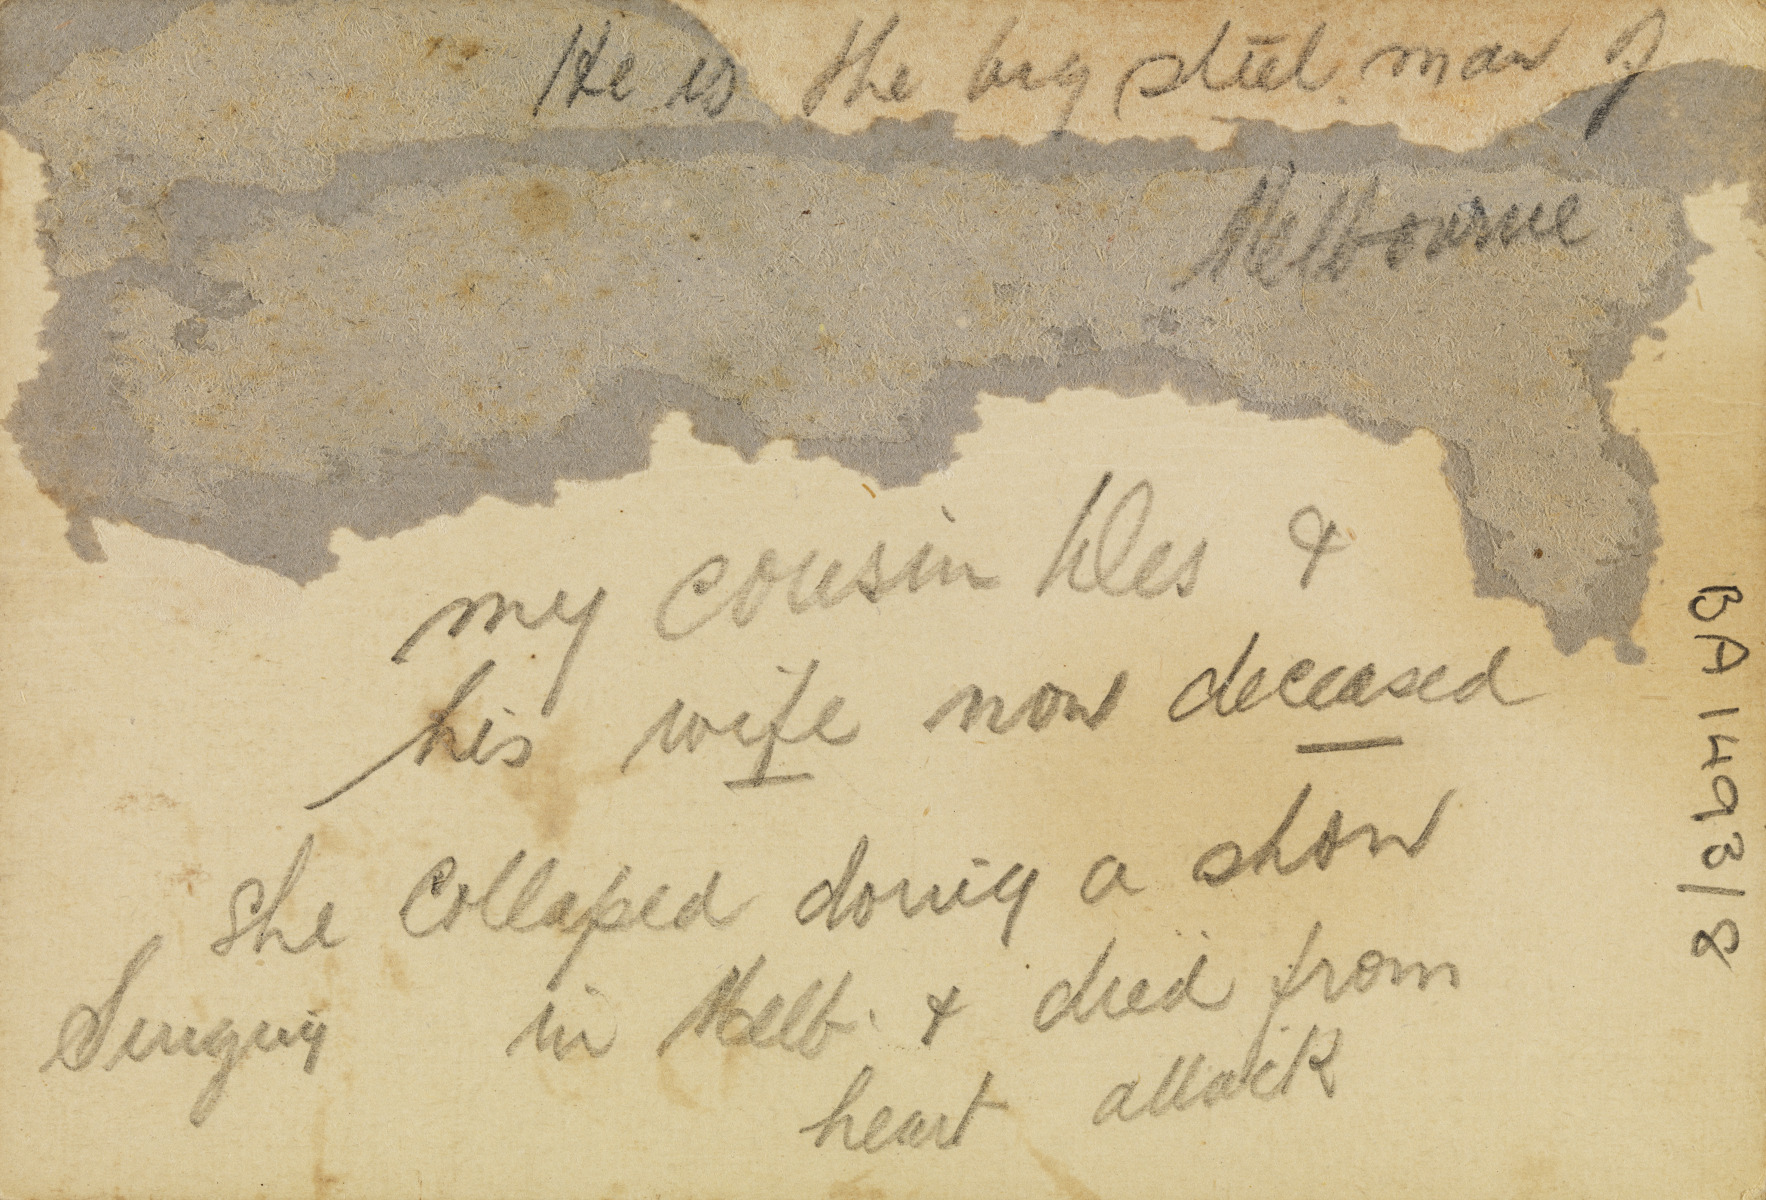 He is the big steel man of
Melbourne
my cousin Des &
his wife now deceased
She collapsed doring a show
Singing in Melb. & died from
heart attack
BA 1493/8